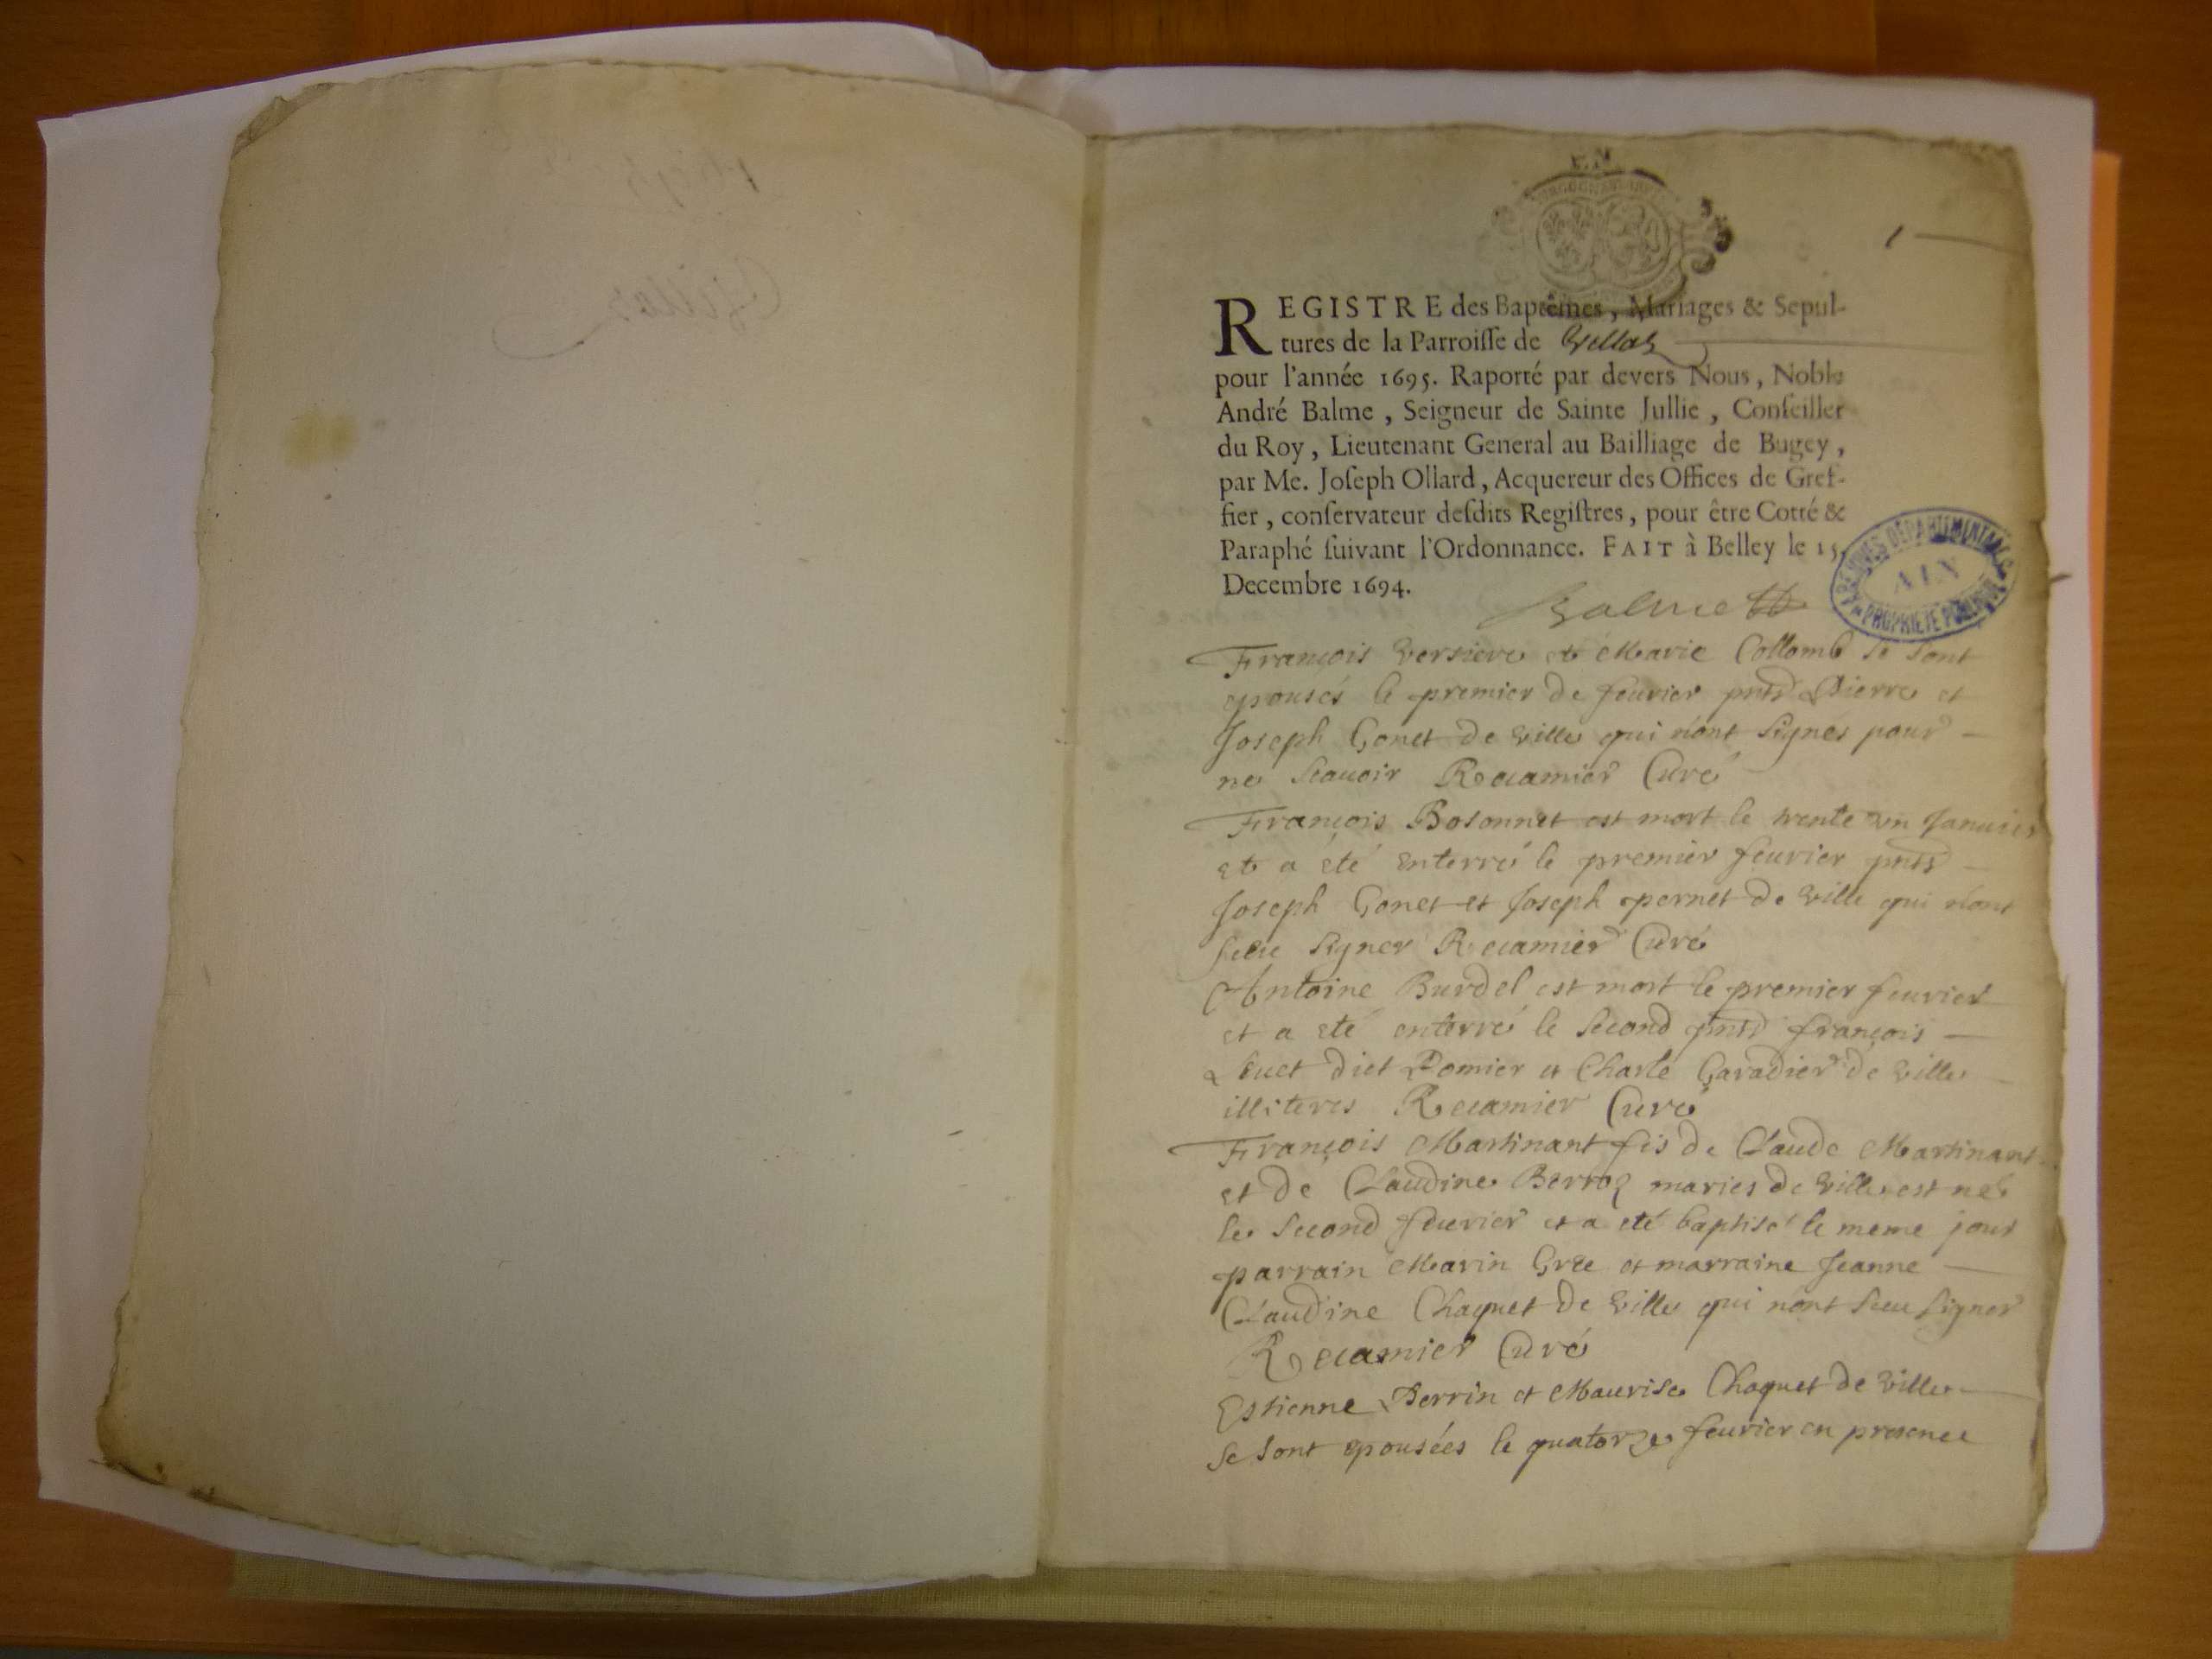 1
REGISTRE des Baptêmes, Mariages & Sepul-
tures de la Parroisse de
pour l'année 1695. Raporté par devers Nous, Noble
André Balme, Seigneur de Sainte Jullie, Conseiller
du Roy, Lieutenant General au Bailliage de Bugey,
par Me. Joseph Ollard, Acquereur des Offices de Gref-
fier, conservateur desdits Registres, pour être Cotté &
Paraphé suivant l'Ordonnance. FAIT à Belley le 15.
Decembre 1694.
Balme
ARCHIVES DÉPARTEMENTALES
AIN
PROPRIÉTÉ PUBLIQUE
François et Marie Collomb se sont
epousés le premier de feurier pnts Pierre et
Joseph Gonet de ville qui nont signés pour
ne scauoir Recamier Curé
François Bosonnet est mort le trente un Januier
et a été enterré le premier feurier pnts
Joseph Gonet et Joseph pernet de ville qui nont
sceu signer Recamier Curé
Antoine Burdel est mort le premier feurier
et a eté enterré le second pnts françois
dict Pomier et Charle de ville
illiteres Recamier Curé
François Martinant fis de Claude Martinant
et de Claudine Berroz maries de ville est né
le second feurier et a eté baptisé le meme jour
parrain Marin et marraine Jeanne
Claudine Chaquet de ville qui nont sceu signer
Recamier Curé
Estienne Perrin et Maurise Chaquet de ville
se sont epousées le quatorze feurier en presence